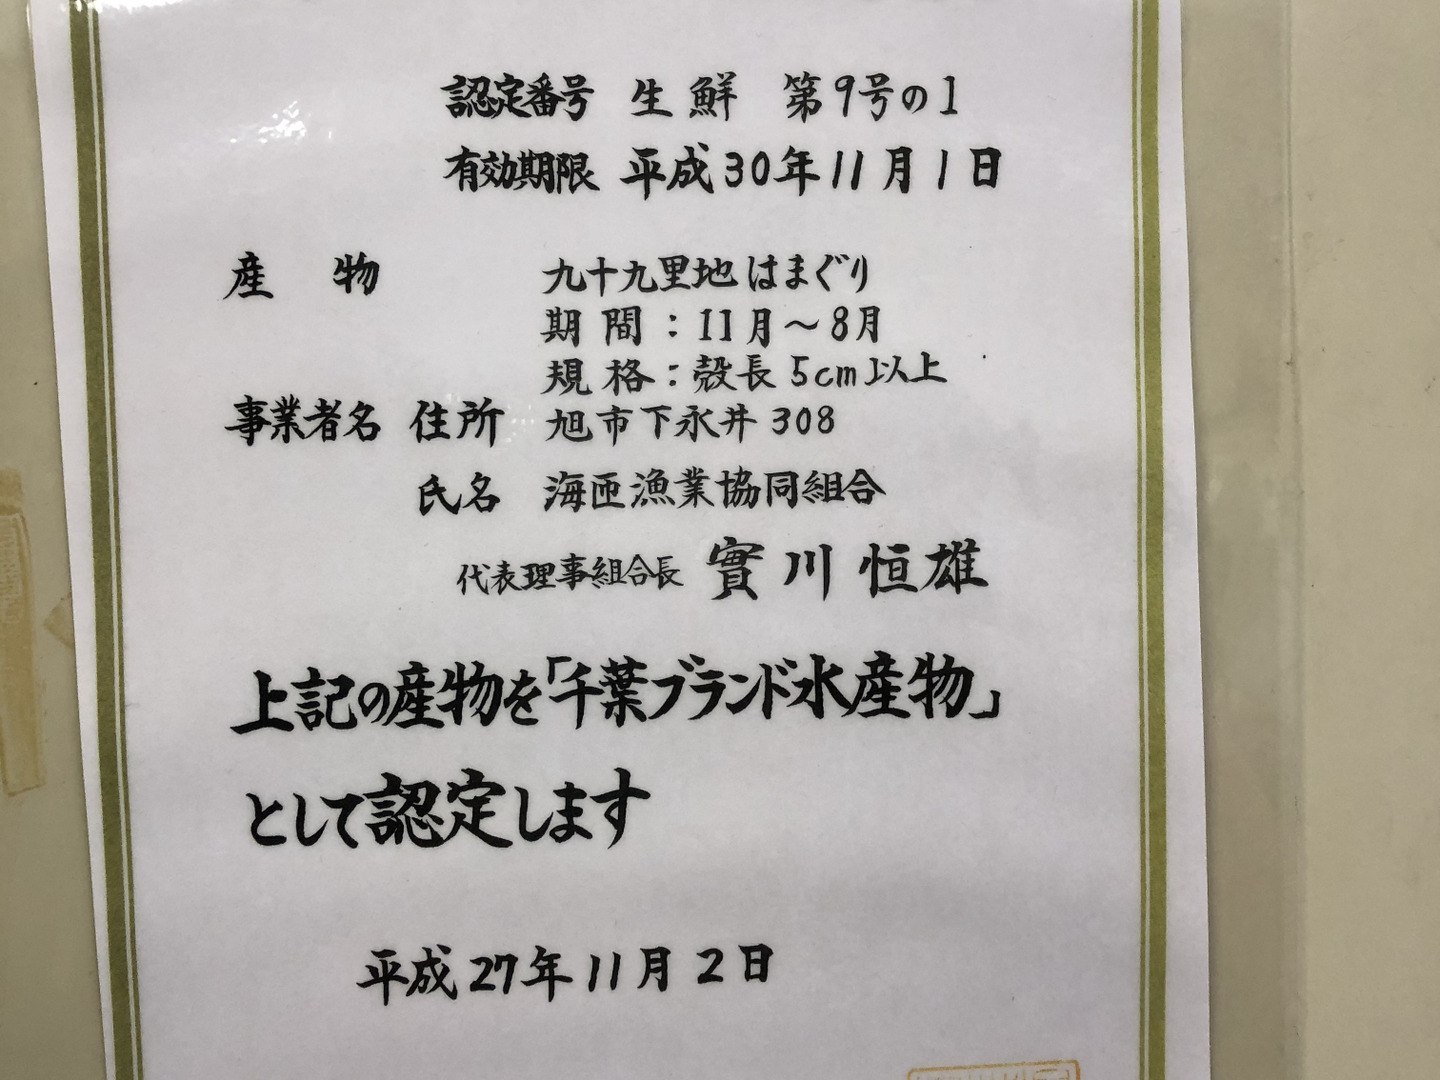 認定番号 生鮮 第9号の1
有効期限 平成30年11月1日
産物 九十九里地はまぐり
期間：11月～8月
規格：殻長5cm以上
事業者名 住所 旭市下永井308
氏名 海匝漁業協同組合
代表理事組合長 實川恒雄
上記の産物を「千葉ブランド水産物」
として認定します
平成27年11月2日